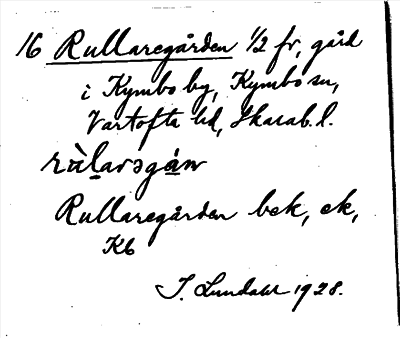 16 Rullaregården 1/2 fr, gård
i Kymbo by, Kymbo sn,
Vartofta hd, Skarab. l.
ràlarsgán
Rullaregården bek, ek,
Kb
I. Lundahl 1928.